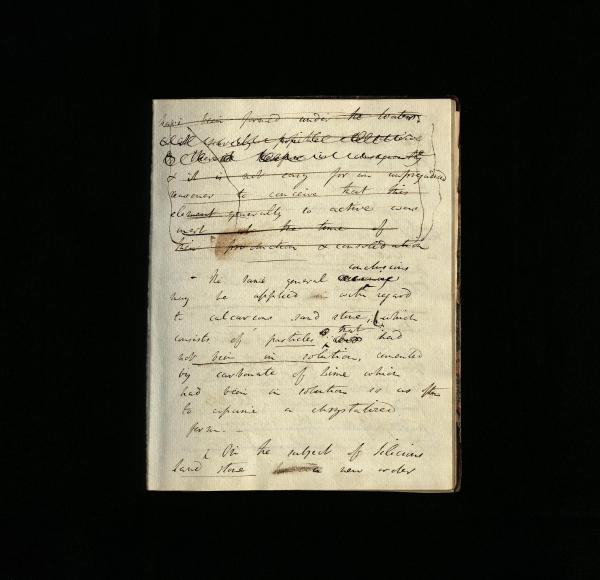 have been formed under the waters.
& it is not easy for an unprejudiced
reasoner to conceive that this
element generally so active were
inert at the time of
their production & consolidation
conclusions
- The same general
may be applied in with regard
to calcareous sand stone, (which
that
consists of particles had
not been in solution, cemented
by carbonate of lime which
had been in solution so as often
to assume a chrystalized
form. -
On the subject of Silicious
sand stone a new order